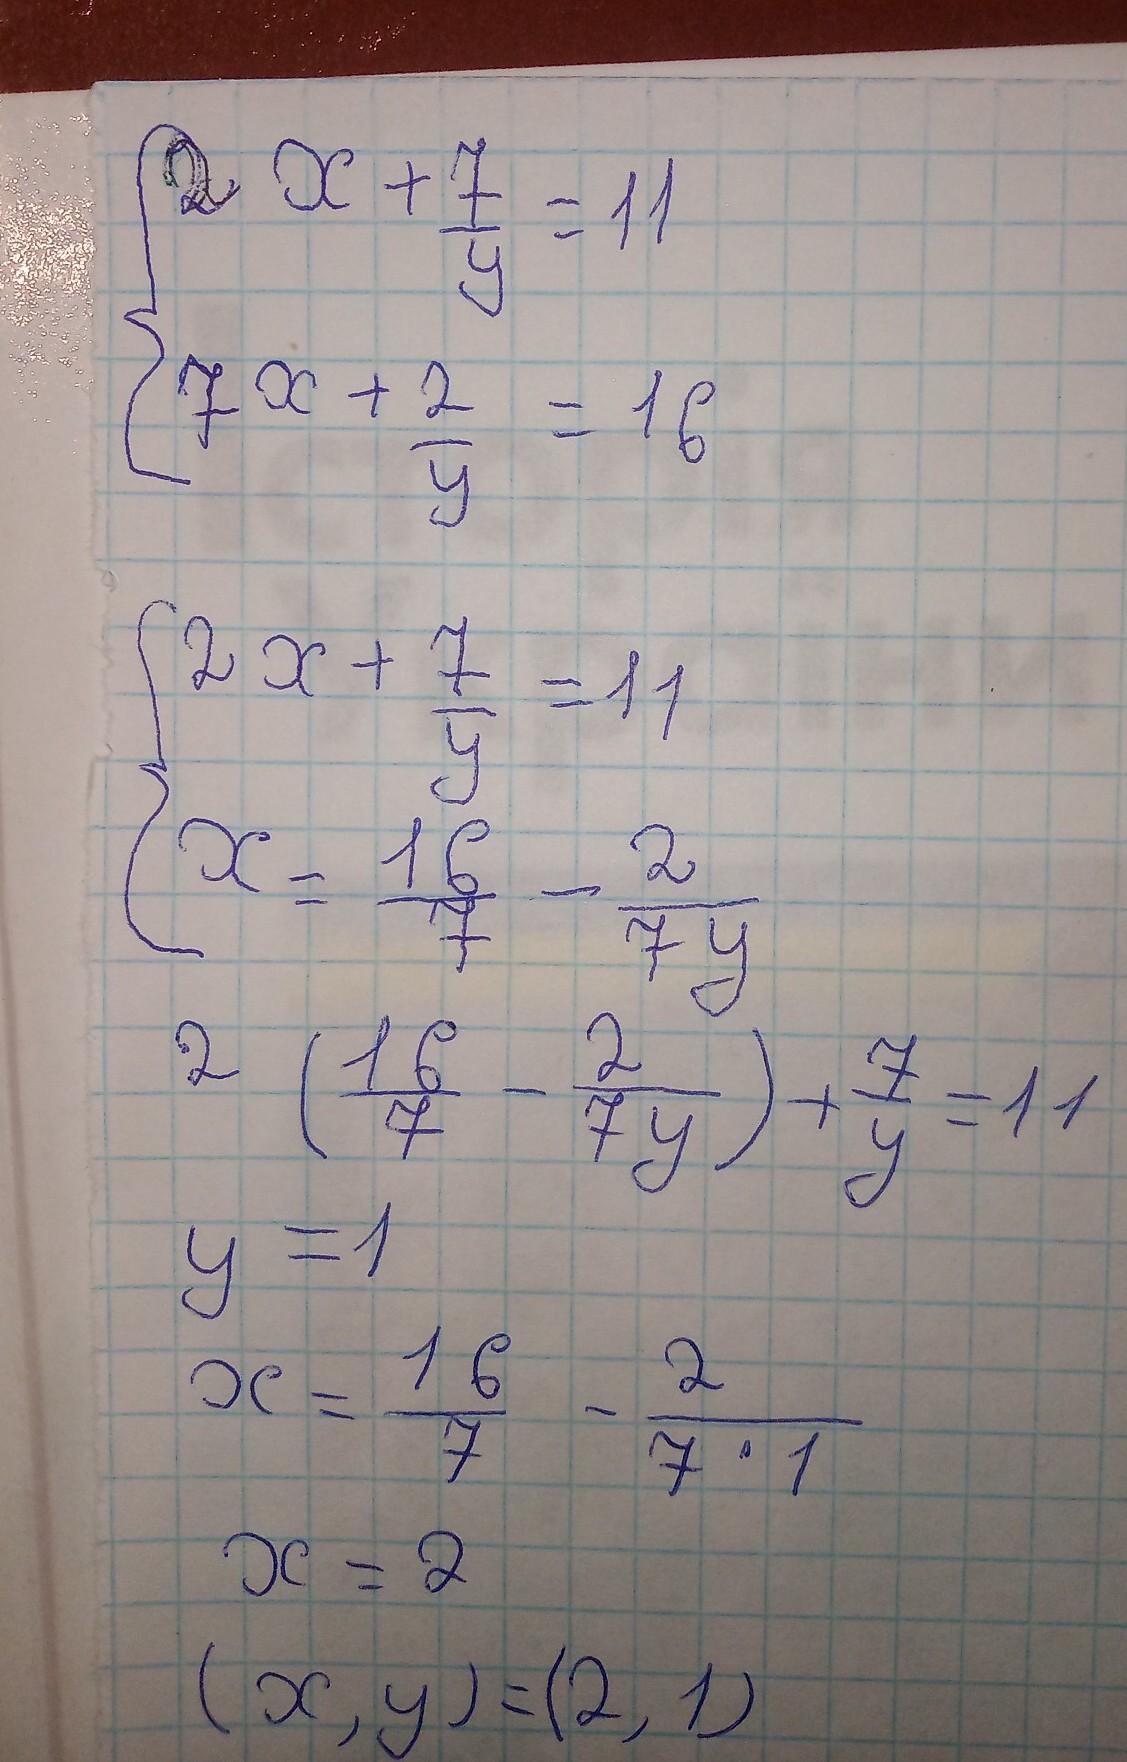 2x + 7/y = 11
7x + 2/y = 16
2x + 7/y = 11
x = 16/7 - 2/7y
2 (16/7 - 2/7y) + 7/y = 11
y = 1
x = 16/7 - 2/7·1
x = 2
(x, y) = (2, 1)